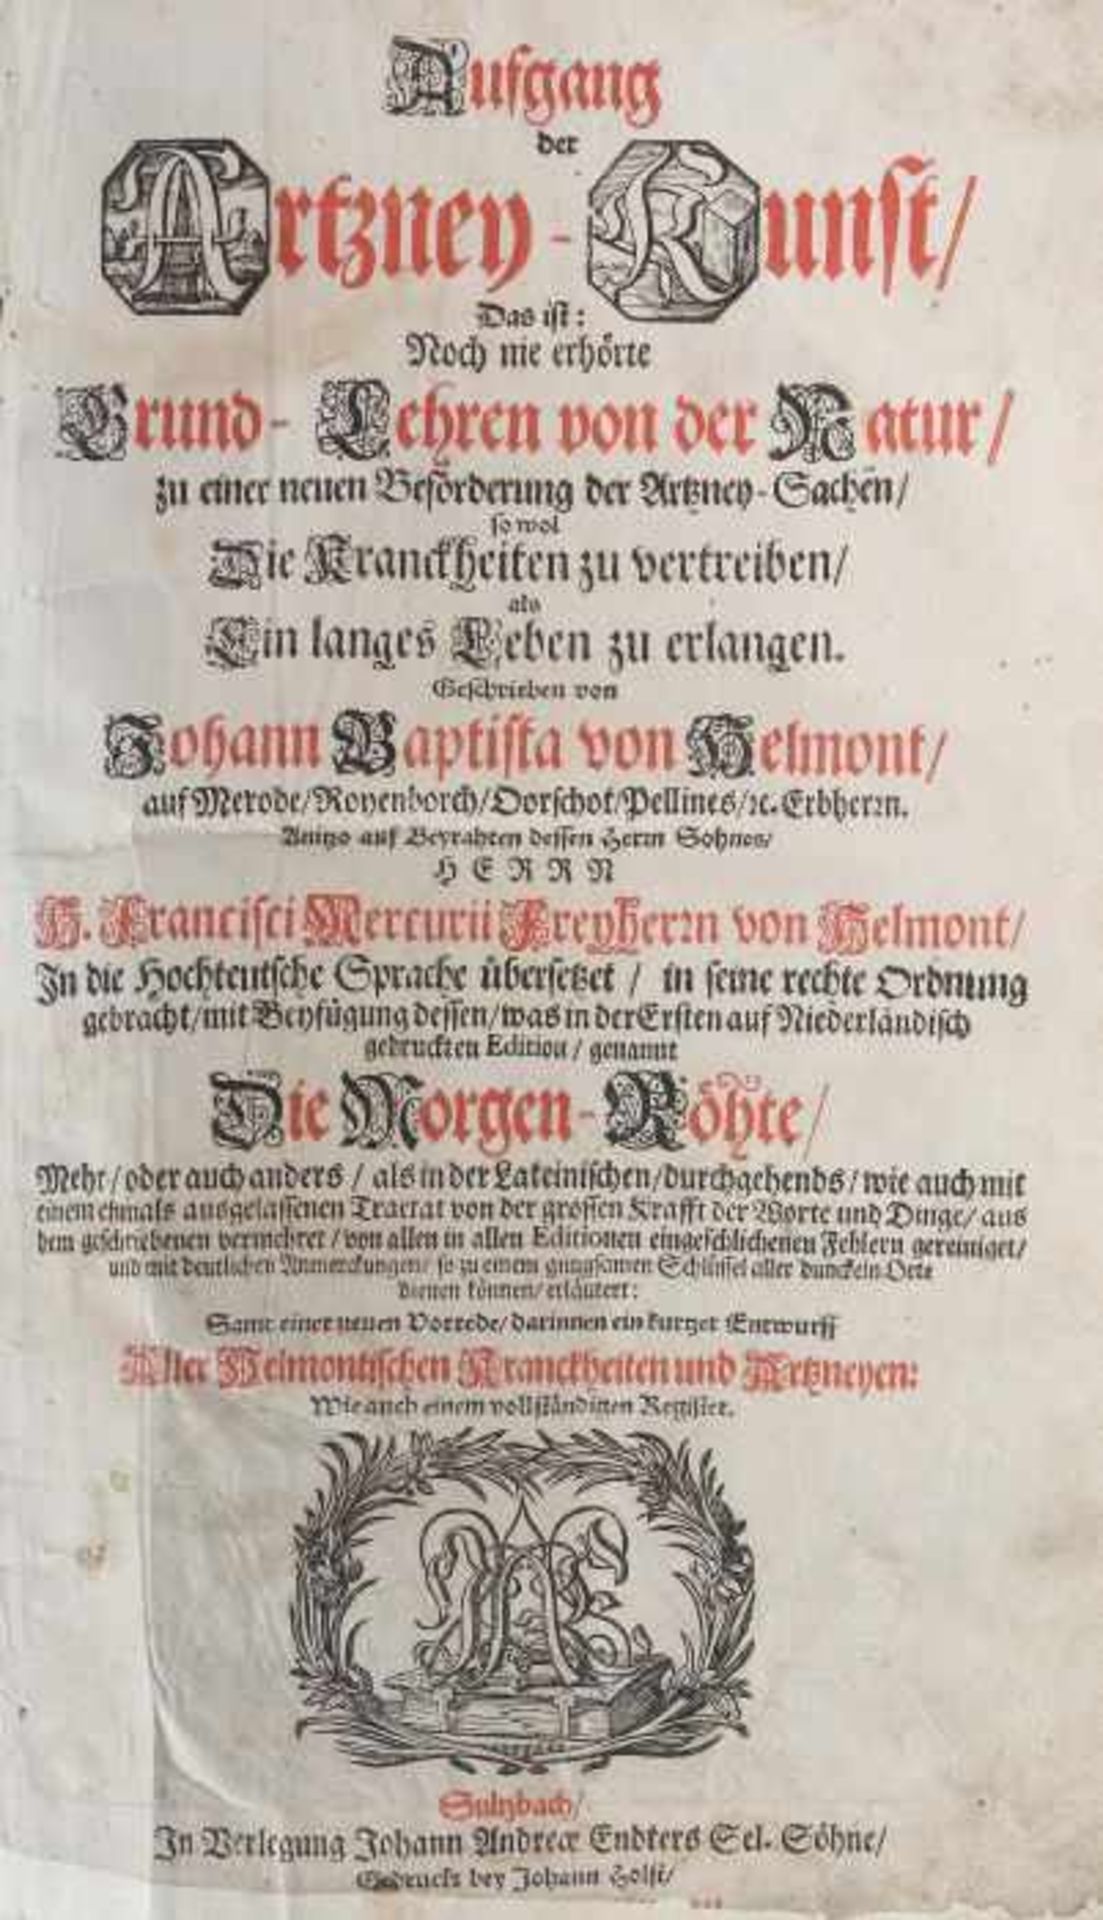 Aufgang
der
Artzney-Kunst/
Das ist:
Noch nie erhörte
Grund-Lehren von der Natur/
zu einer neuen Beförderung der Artzney-Sachen/
so wol
Die Kranckheiten zu vertreiben/
als
Ein langes Leben zu erlangen.
Geschrieben von
Johann Baptista von Helmont/
auf Merode/Royenborch/Oorschot/Pellines/ꝛc. Erbherꝛn.
Anitzo auf Beyrahten dessen Herrn Sohnes/
HERRN
H. Francisci Mercurii Freyherꝛn von Helmont/
In die Hochteutsche Sprache übersetzet / in seine rechte Ordnung
gebracht/mit Beyfügung dessen/was in der Ersten auf Niederländisch
gedruckten Edition / genannt
Die Morgen-Röhte/
Mehr/oder auch anders / als in der Lateinischen/durchgehends/wie auch mit
einem ehmals ausgelassenen Tractat von der grossen Krafft der Worte und Dinge/ aus
dem geschriebenen vermehret/von allen in allen Editionen eingeschlichenen Fehlern gereiniget/
und mit deutlichen Anmerckungen/ so zu einem gnugsamen Schlüssel aller dunckeln Orte
dienen können/erläutert:
Samt einer neuen Vorrede/darinnen ein kurtzer Entwurff
Aller Helmontischen Kranckheiten und Artzneyen:
Wie auch einem vollständigen Register.
Sultzbach/
In Verlegung Johann Andreæ Endters Sel. Söhne/
Gedruckt bey Johann Holst/